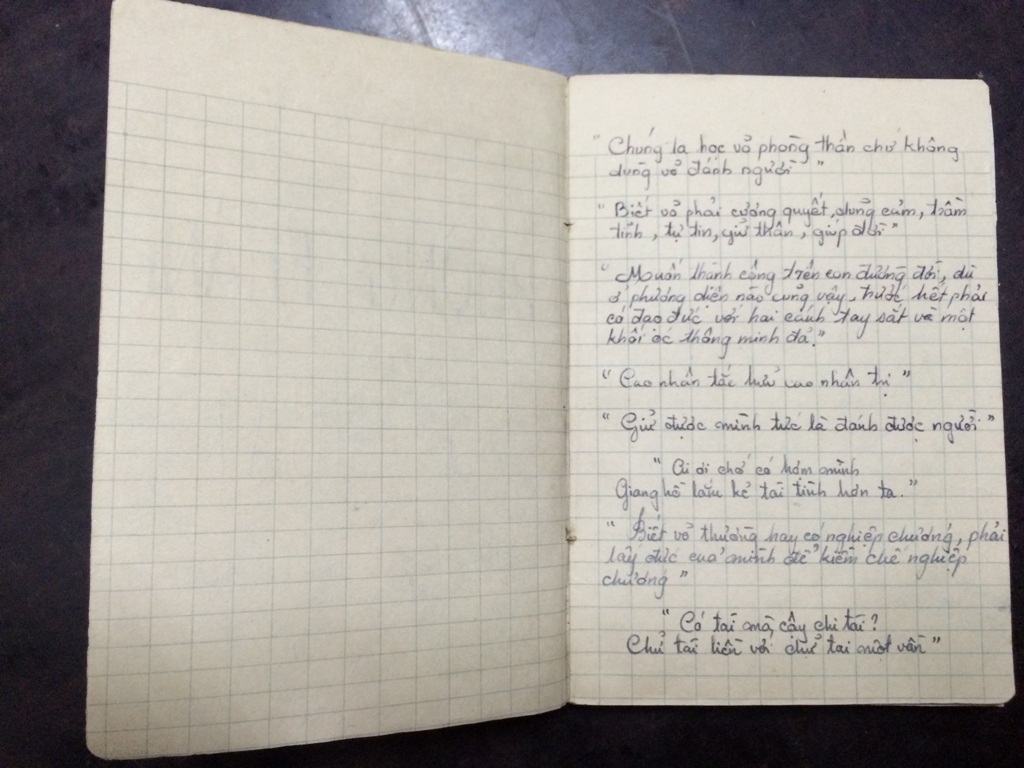 " Chúng ta học vỏ phòng thân chớ không
dùng vỏ đánh người "
" Biết vỏ phải cương quyết, dũng cảm, trầm
tĩnh, tự tin, giử thân, giúp đời "
" Muốn thành công trên con đường đời, dù
ở phương diện nào cung vậy, trước hết phải
có đạo đức với hai cánh tay sắt và một
khối óc thông minh đả. "
" Cao nhân tắc hửu cao nhân trị "
" Giử được mình tức là đánh được người "
" Ai ơi chớ có hơm mình
Giang hồ lắm kẻ tài tình hơn ta. "
" Biết vỏ thường hay có nghiệp chướng, phải
lấy đức của mình để kiềm chế nghiệp
chướng "
" Có tài mà cậy chi tài ?
Chử tài liền với chử tai một vần "